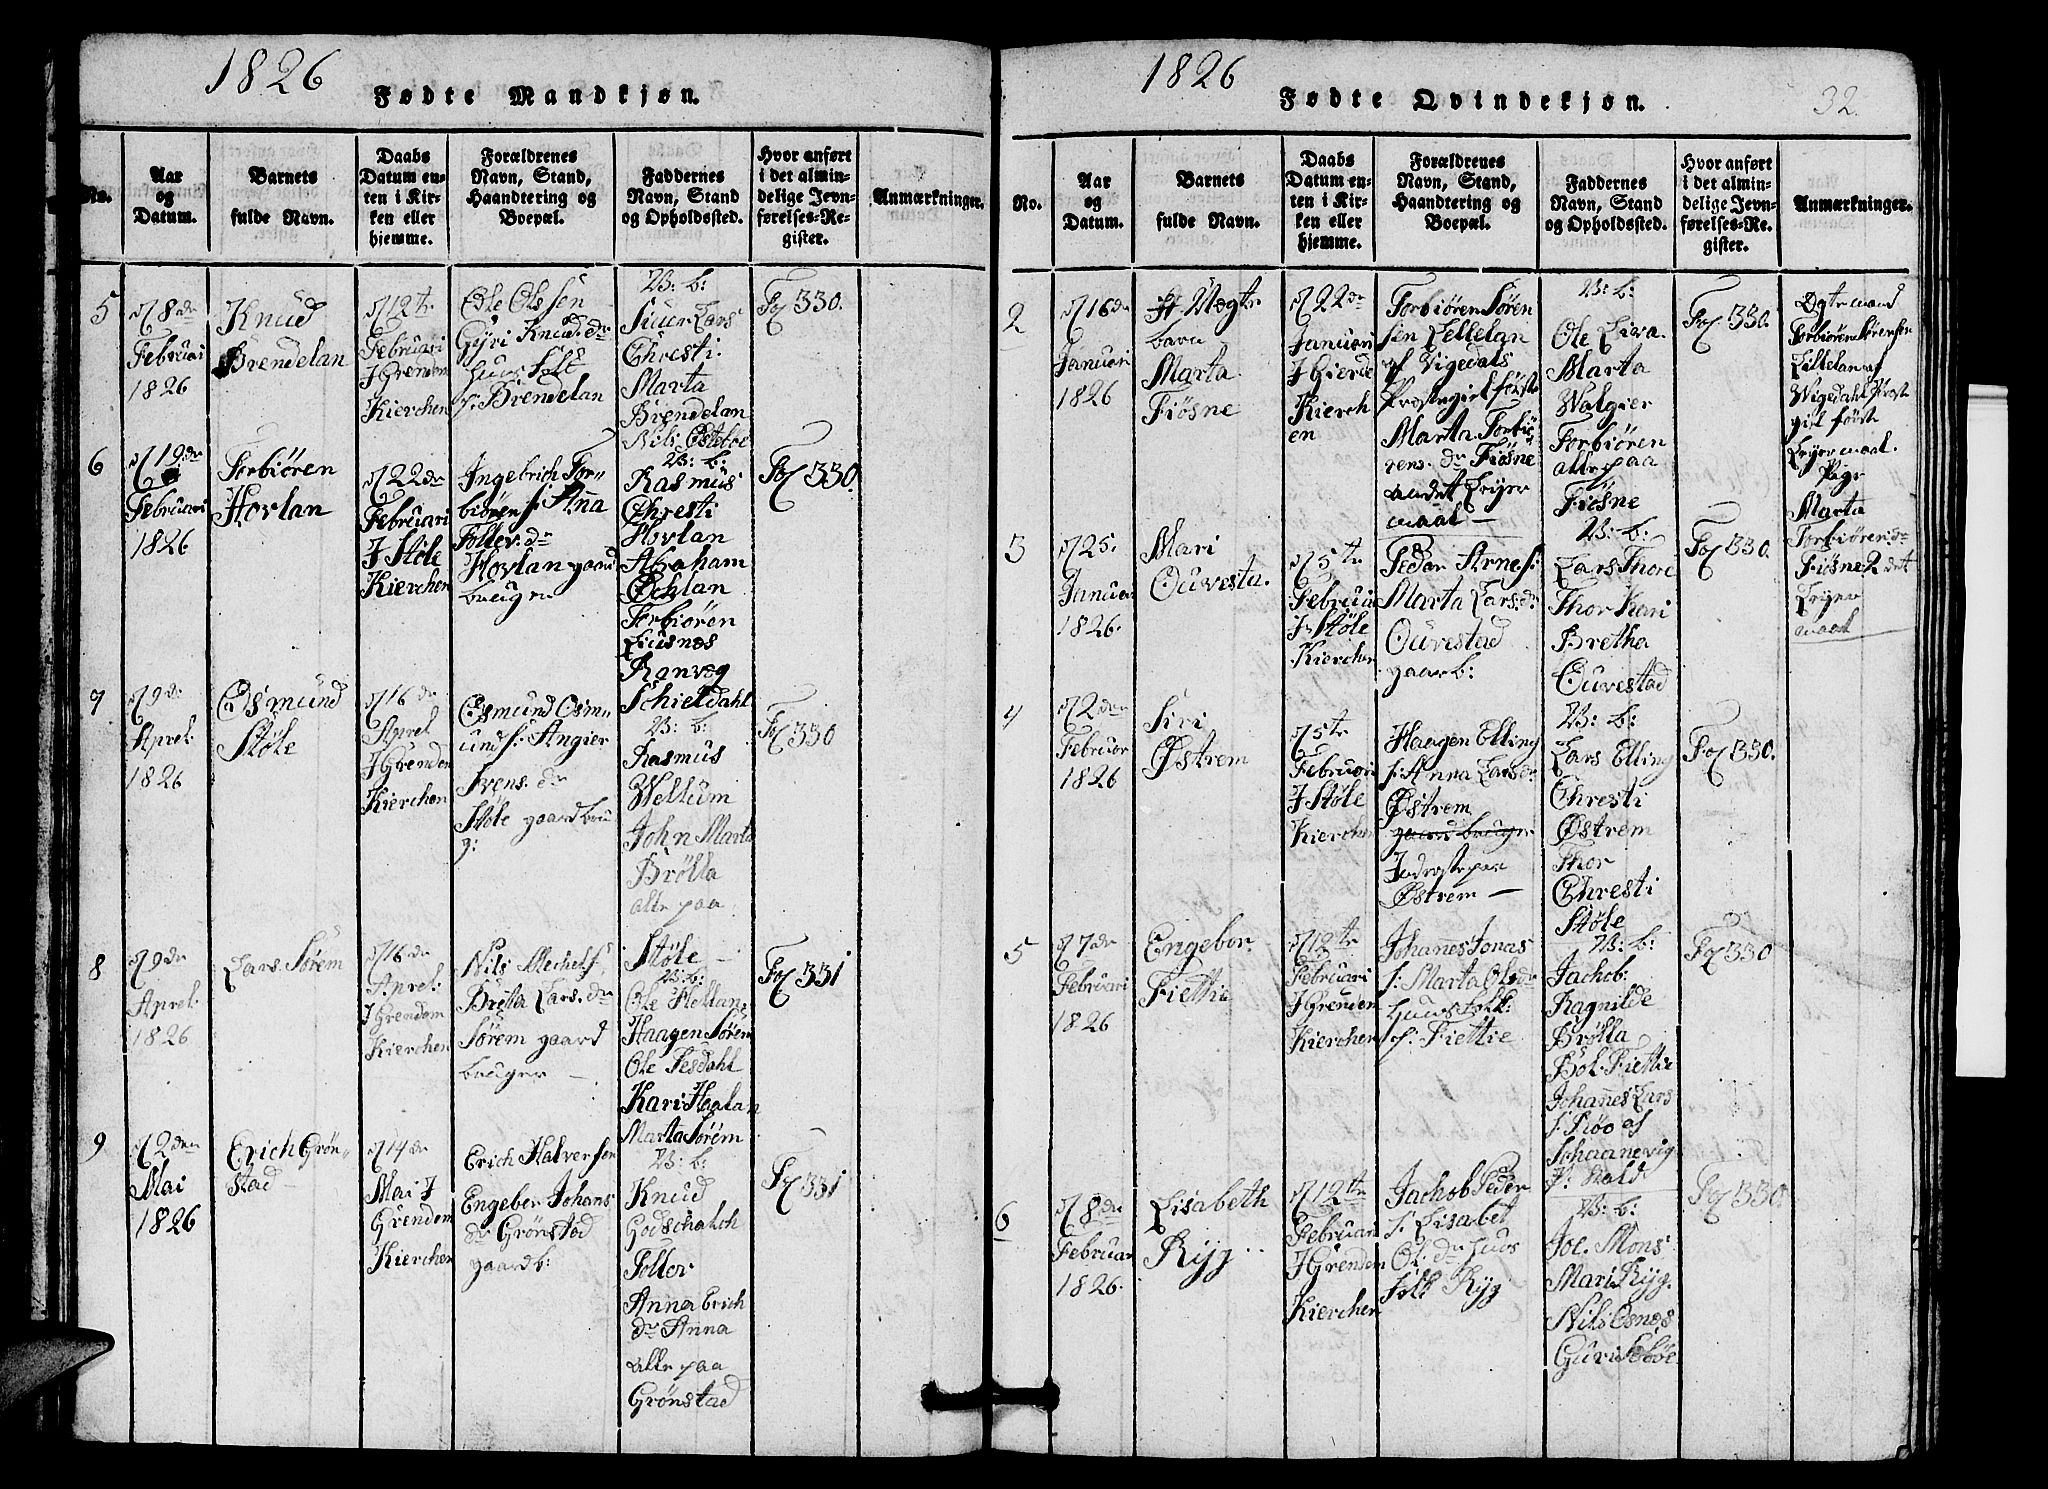 1826
Fødte Mandkjøn.
No.
Aar
og
Datum.
Barnets
fulde Navn.
Daabs
Datum en-
ten i Kir-
ken eller
hjemme.
Forældrenes
Navn, Stand,
Haandtering og
Boepæl.
Faddernes
Navn, Stand
og Opholdssted.
Hvor anført
i det almin-
delige Jevn-
førelses-Re-
gister.
Anmærkninger.
5
8de
Februari
1826
Knud
Brendelan
12te
Februari
I Grendem
Kierchen
Ole Olssen
Gyri Knud. dr
huus folk
Brendelan
V: b:
Siur Lars
Christi
Marta
Brendelan
Nils Østeboe
Fol 330.
6
19de
Februari
1826
Torbiören
Hovlan
22de
Februari
I Støle
Kierchen
Ingebrich Tor-
biörens. Anna
Toller. dr
Hovlan gaard
bruger
V: b:
Rasmus
Christi
Hovlan
Abraham
Øchlan
Torbiören
Liusnes
Ranveg
Schieldahl
Fol 330.
7
9de
Aprel:
1826
Osmund
Støle
16de
Aprel
I Grendem
Kierchen
Osmund Osm-
unds: Angier
Ivens. dr
Støle gaardbru
g:
V: b:
Rasmus
Wellum
John Marta
Brölla
alle paa
Støle
Fol 330
8
9de
Aprel:
1826
Lars Sörem
16de
Aprel:
I Grendem
Kierchen
Nils Mechels
Brita Lars. dr
Sörem gaard
bruger
V: b:
Ole Hellan
Haagen Sörem
Ole Tesdahl
Kari Haalan
Marta Sörem
Fol 331
9
2den
Mai
1826
Erich Grön-
stad
14de
Mai I
Grendem
Kierchen
Erich Halversen
Engeber Johans
dr Grönstad
gaardb:
V: b:
Knud
Godschalch
Toller
Anna Erich
dr Anna
alle paa
Grönstad
Fol 331
1826
Fødte Qvindekjøn.
32.
No.
Aar
og
Datum.
Barnets
fulde Navn.
Daabs
Datum en-
ten i Kir-
ken eller
hjemme.
Forældrenes
Navn, Stand,
Haandtering og
Boepæl.
Faddernes
Navn, Stand
og Opholdssted.
Hvor anført
i det almin-
delige Jevn-
førelses-Re-
gister.
Anmærkninger.
2
16de
Januari
1826
Et Uægte
barn
Marta
Fiösne
22de
Januari
I Gierde
Kierch
en
Torbiören Sören
sen Lellelan
af Vigedals
Prestegield förste
Marta Torbiö
rens. dr Fiösne
andet Leyer
maal
V: b:
Ole Liva.
Marta
Valgier
Torbiören
alle paa
Fiösne
Fol 330.
Ogte mand
Torbiören Sörensen
Lillelan af
Wigedahl Prest
gil først
Leyermaal.
Pige
Marta
Torbiören dr
Fiösne 2 det
Leyer
maal
3
25.
Januari
1826.
Mari
Ouvesta.
5te
Februari
I Støle
Kierchen
Peder Arnes:
Marta Lars. dr
Ouvestad
gaarb:
V: b:
Lars Thore
Thor Kari
Bretha
Ouvestad
Fol 330.
4
2den
Februar
1826
Siri
Østrem
5te
Februari
I Støle
Kierchen
Haagen Elling
s: Anna Lars dr
Østrem
gaard bruger
Inderste paa
Østrem
V: b:
Lars Elling
Christi
Østrem
Thor
Christi
Støle
Fol 330.
5
7de
Februari
1826
Engebor
Fiettie
12te
Februari
I Grendem
Kierchen
Johanes Jonas
s: Marta Ols dr
huus folk:
Fiettie
V: b:
Jachob:
Ragnilde
Brölla
Böl. Fiettie
Johanes Lars
s: Siöo af
Johaanevig
P: Nald
Fol 330
6
8de
Februar
1826.
Lisabeth
Ryg
12te
Februari
I Grendem
Kierchen
Jachob Peder
s: Lisabet
Ol: dr huus
folk Ryg
V: b:
Joe. Mons
Mari Ryg.
Nils Osnes
Guri Eböe
Fol 330.